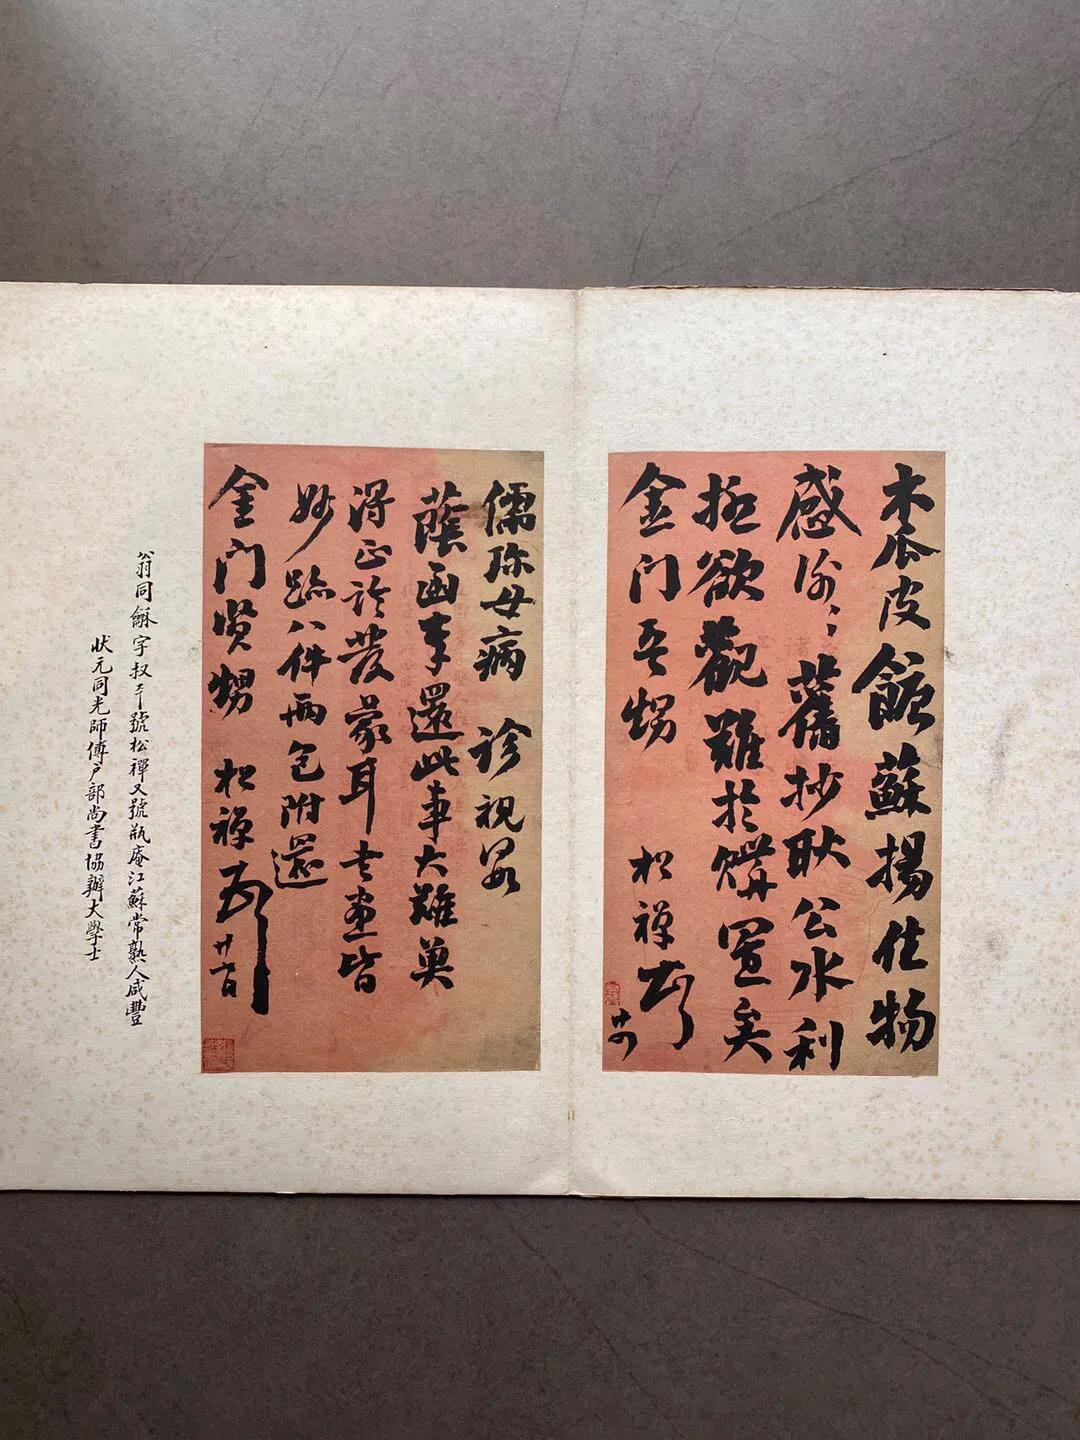 木瓜皮館蘇揚仕物
感谢〻舊抄耿公水利
極欲觀難於購置矣
金门吾甥 松禪
儒珍母病 診視
蔭函奉還此事大難莫
得正論發蒙耳書畫皆
妙跡八件兩包附還
金门賢甥 松禪 廿六日
翁同龢字叔平號松禪又號瓶庵江蘇常熟人咸豐
狀元同光師傅戶部尚書協辦大學士